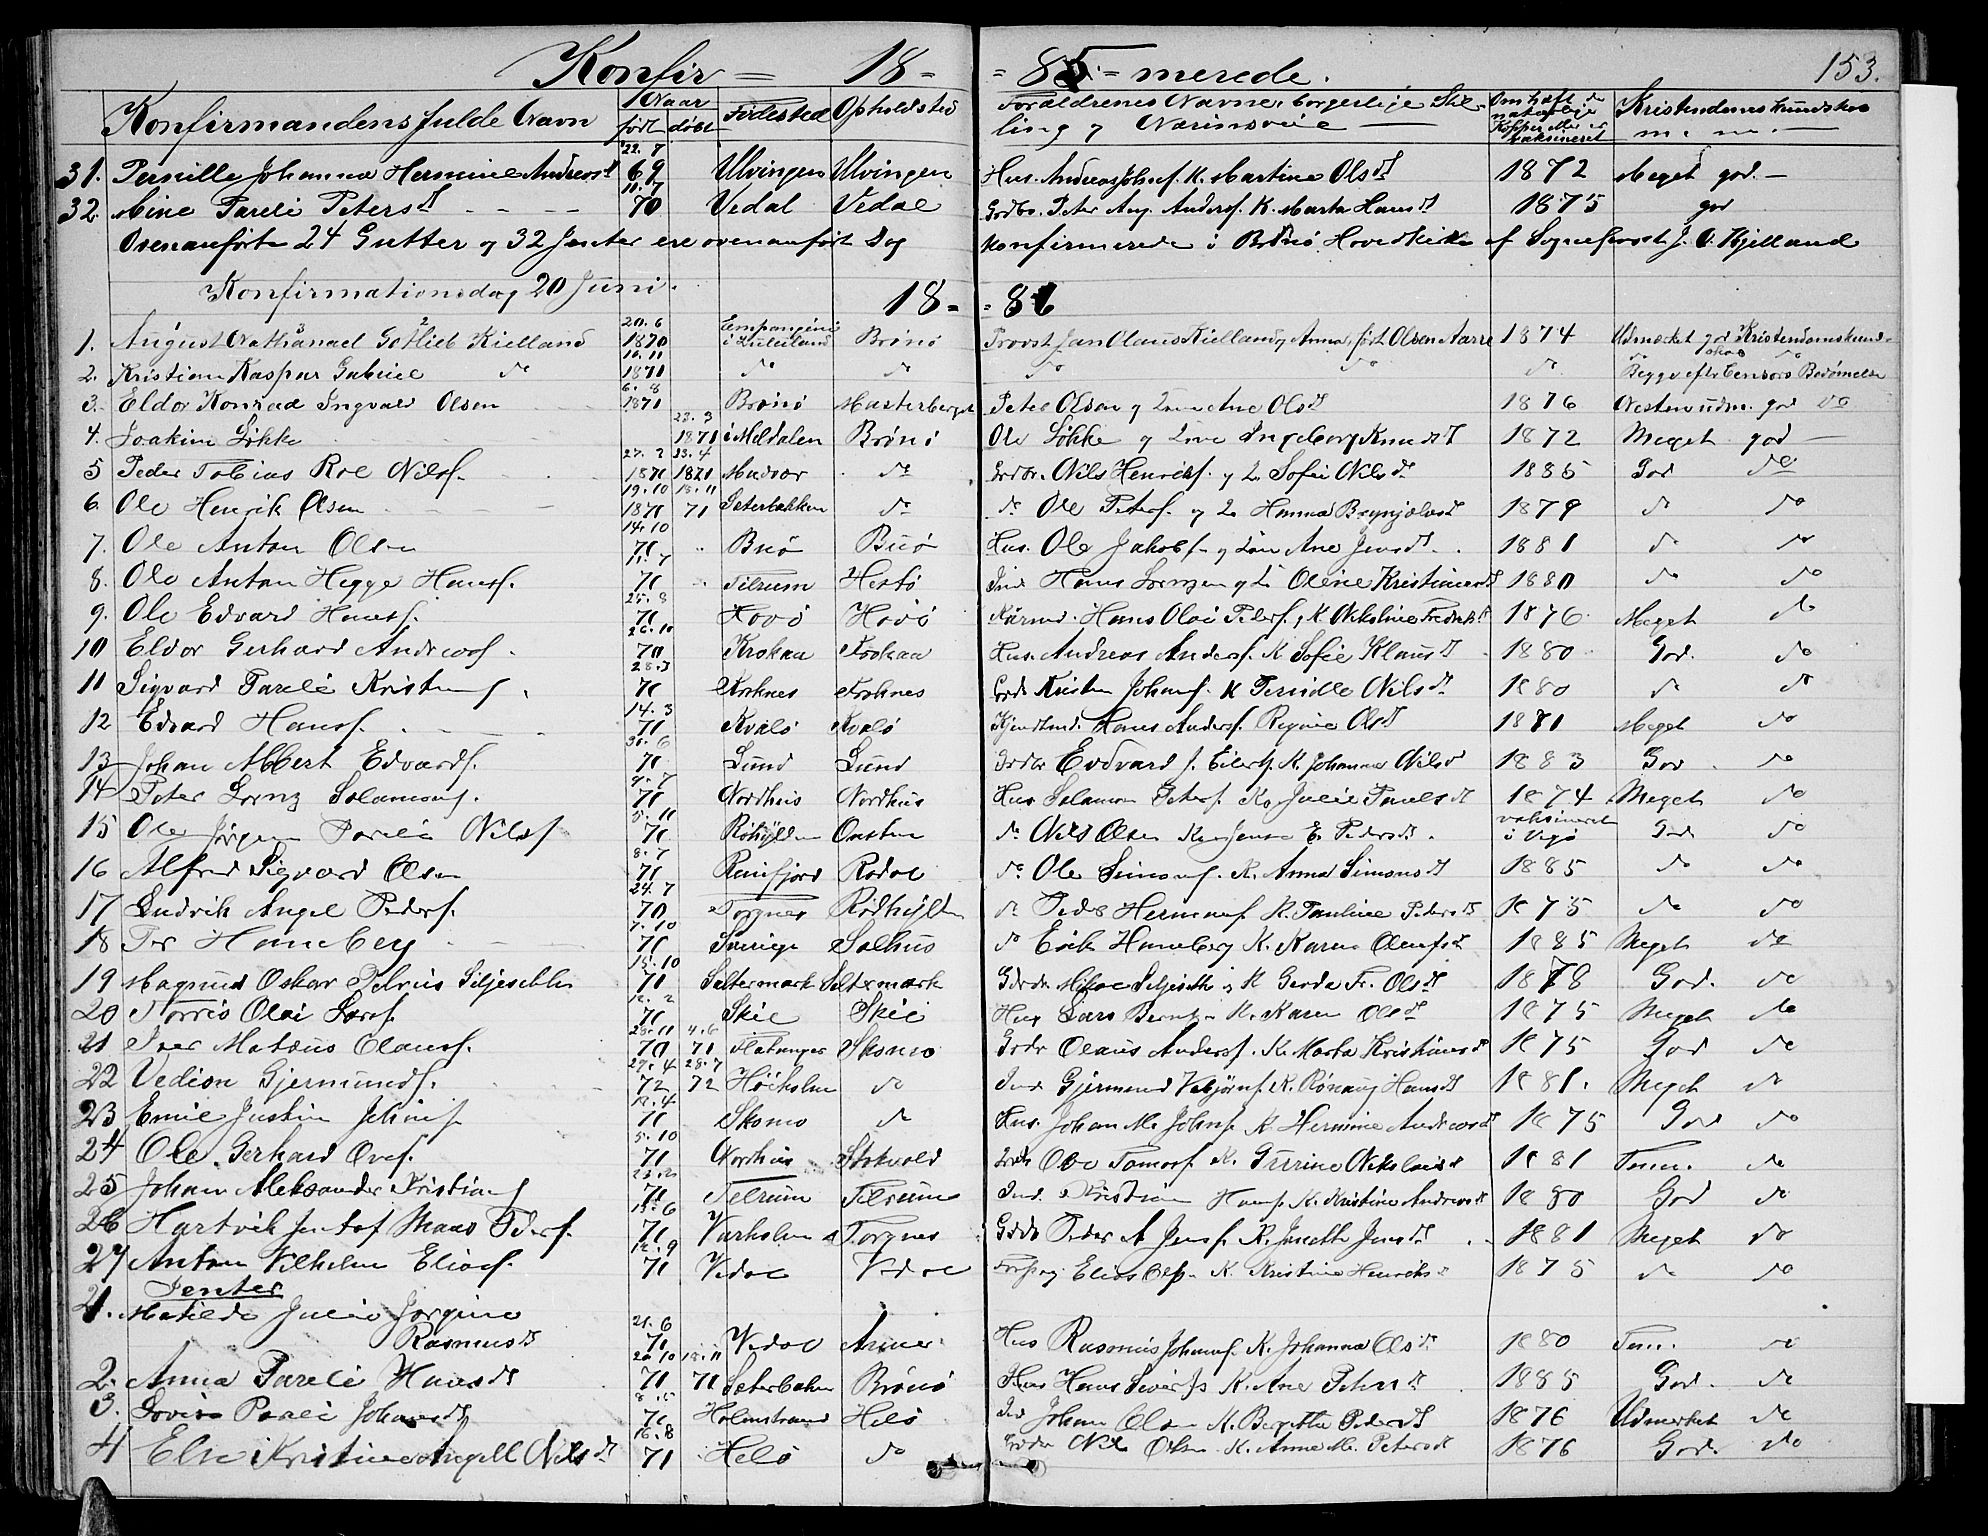 Konfir = 18 - = 85 = merede. 153.
Konfirmandens fulde Navn Naar født døbt Fødested Opholdsted Forældrenes Navne, borgerlige Stil- Om haft de naturlige Kopper eller er vaksineret Kristendomskundskab
ling og Næringsveie m. m.
31. Pernille Johanna Hermine Andreasd 22.7 69 Ulvingen Ulvingen Hus. Andreas Johns. K. Martine Olsd 1872 Meget god. —
32. Mine Pareli Petersd 11.7 70 Vedal Vedal Grdbr. Peter Aug. Anders. K. Marta Hansd 1875 god
Ovenanførte 24 Gutter og 32 Jenter ere ovenanført Dag konfirmerede i Brønø Hovedkirke af Sogneprest J. O. Kjelland
Konfirmationsdag 20 Juni. 18 = = 86
1. August Nathanael Gotlieb Kielland 20.6 1870 Brønø Provst Jan Olaus Kielland og Anna født Olsen Aarre 1874 Udmerket god Kristendomskund-
2. Kristian Kaspar Gabriel do 16.11 1871 do do do do do Begge efter Censors Bedømelse
3. Eldor Konrad Ingvald Olsen 6.8 1871 Brønø Peter Olsen og Kone Ane Olsd 1876 Nesten udm. god do
4. Joakim Løkke 28.3 1871 i Meldalen Brønø Ole Løkke og Kone Ingeborg Knudsd 1872 Meget god —
5 Peder Tobias Roe Nilss. 27.2 1871 23.4 1871 Mudvær do Grdbr. Nils Henriks. og K. Sofie Nilsd 1885 God do
6. Ole Henrik Olsen 19.10 1871 18.11 71 Seterbakken do do Ole Peters. og K. Hanna Brynjolvsd 1879 do do
7. Ole Anton Olsen 14.10 71 Buø Buø Hus. Ole Jakobs. og Kone Ane Jensd 1881 do do
8. Ole Anton Hegge Hanss. 11.7 71 Tilrum Hestø Ind. Hans Lorenzen og K. Oline Kristiansd 1880 do do
9. Ole Edvard Hanss. 25.8 71 Hovø Hovø Hans Olai Peters. K. Nikoline Fredriksd 1876 Meget do
10 Eldor Gerhard Andreass. 26.10 70 Krokaa Krokaa Hus. Andreas Anders. K. Sofie Klausd 1880 God. do
11 Sigvard Pareli Kristens. 28.3 71 Grdb Kristen Johans. K Pernille Nilsd 1880 do do
12 Edvard Hanss. 14.3 71 Kvalø Kvalø Hans Anders. Regine Olsd 1881 Meget do
13 Johan Albert Edvards. 30.6 71 Lund Lund Grdbr Edvard J. Eilerts. K. Johanna Nilsd 1883 God. do
14 Peter Lorenz Salamons. 9.7 71 Nordhus Nordhus Hus Salamon Peters. K. Julie Paulsd 1874 Meget do
15 Ole Jørgen Pareli Nilss 5.11 71 Røhylden Onsten do Nils Olsen Kone Jensa E. Pedersd. vaksineret i Vegø God do
16 Alfred Sigvard Olsen 8.7 71 Ranfjord Rødal do Ole Simons. K. Anna Simonsd 1885 do do
17 Ludvik Angel Peders. 24.7 70 Torgnes Rødhylden do Peder Hermans. K. Pauline Pedersd 1875 do do
18 Per Haneberg 7.10 71 Sverige Salhus do Erik Haneberg K. Karen Olufsd 1885 Meget do
19 Magnus Oskar Petrus Siljeseth 15.10 71 Saltermark Saltermark Grdbr Mikal Siljeseth og K Gerda Fr. Olsd 1878 God. do
20 Norris Olai Larss. 12.2 71 Skie Skie Hus Lars Bernts. K. Karen Olsd 1875 Meget do
21 Iver Mateus Olauss. 28.11 70 4.6 71 Flatanger Skomo Grdbr Olaus Anders. K. Marta Kristiansd 1875 God do
22 Vedion Gjermunds. 27.4 72 28.7 72 Høiholm do Ind Gjermund Vebjørns. K. Rønaug Hansd 1881. Meget do
23 Emil Justin Johns. 12.4 71 Skomo do Hus. Johan M. Johns. K Hermine Andreasd 1875 God do
24 Ole Gerhard Oves. 5.10 71 Northus Stokvold Ove Tomass. K. Gurine Nikolaisd 1881 Tem. do
25 Johan Aleksander Kristians 71 Tilrum Tilrum Ind. Kristian Hans. K. Kristine Andreasd 1880 God do
26 Hartvik Jentof Maas Peders. 15.6 71 Varholmen Torgnes Grdb Peder A Jens. K. Jonetta Jensd 1881 Meget do
27 Anton Vilhelm Elias. 12.9 71 Vedal Vedal Elias Ols. K. Kristine Henriksd 1875 do do
Jenter
1. Matilde Julie Jorgine
Rasmusd 21.6 71 Vedal Hus Rasmus Johans. K. Johanna Olsd 1880 Tem. do
2. Anna Pareli Hansd 20.10 71 18.11 71 Seterbaken Brønø Hus Hans Siverts K. Ane Petersd 1885 God. do
3. Lovise Pareli Johansd 8.5 71 Holmstrand Helø Ind Johan Olsen K. Beretha Pedersd 1876 Udmerket do
4 Else Kristine Angell Nilsd 16.8 71 Helø do Grdbr Nils Olsen K. Anne M. Petersd 1876 God. do